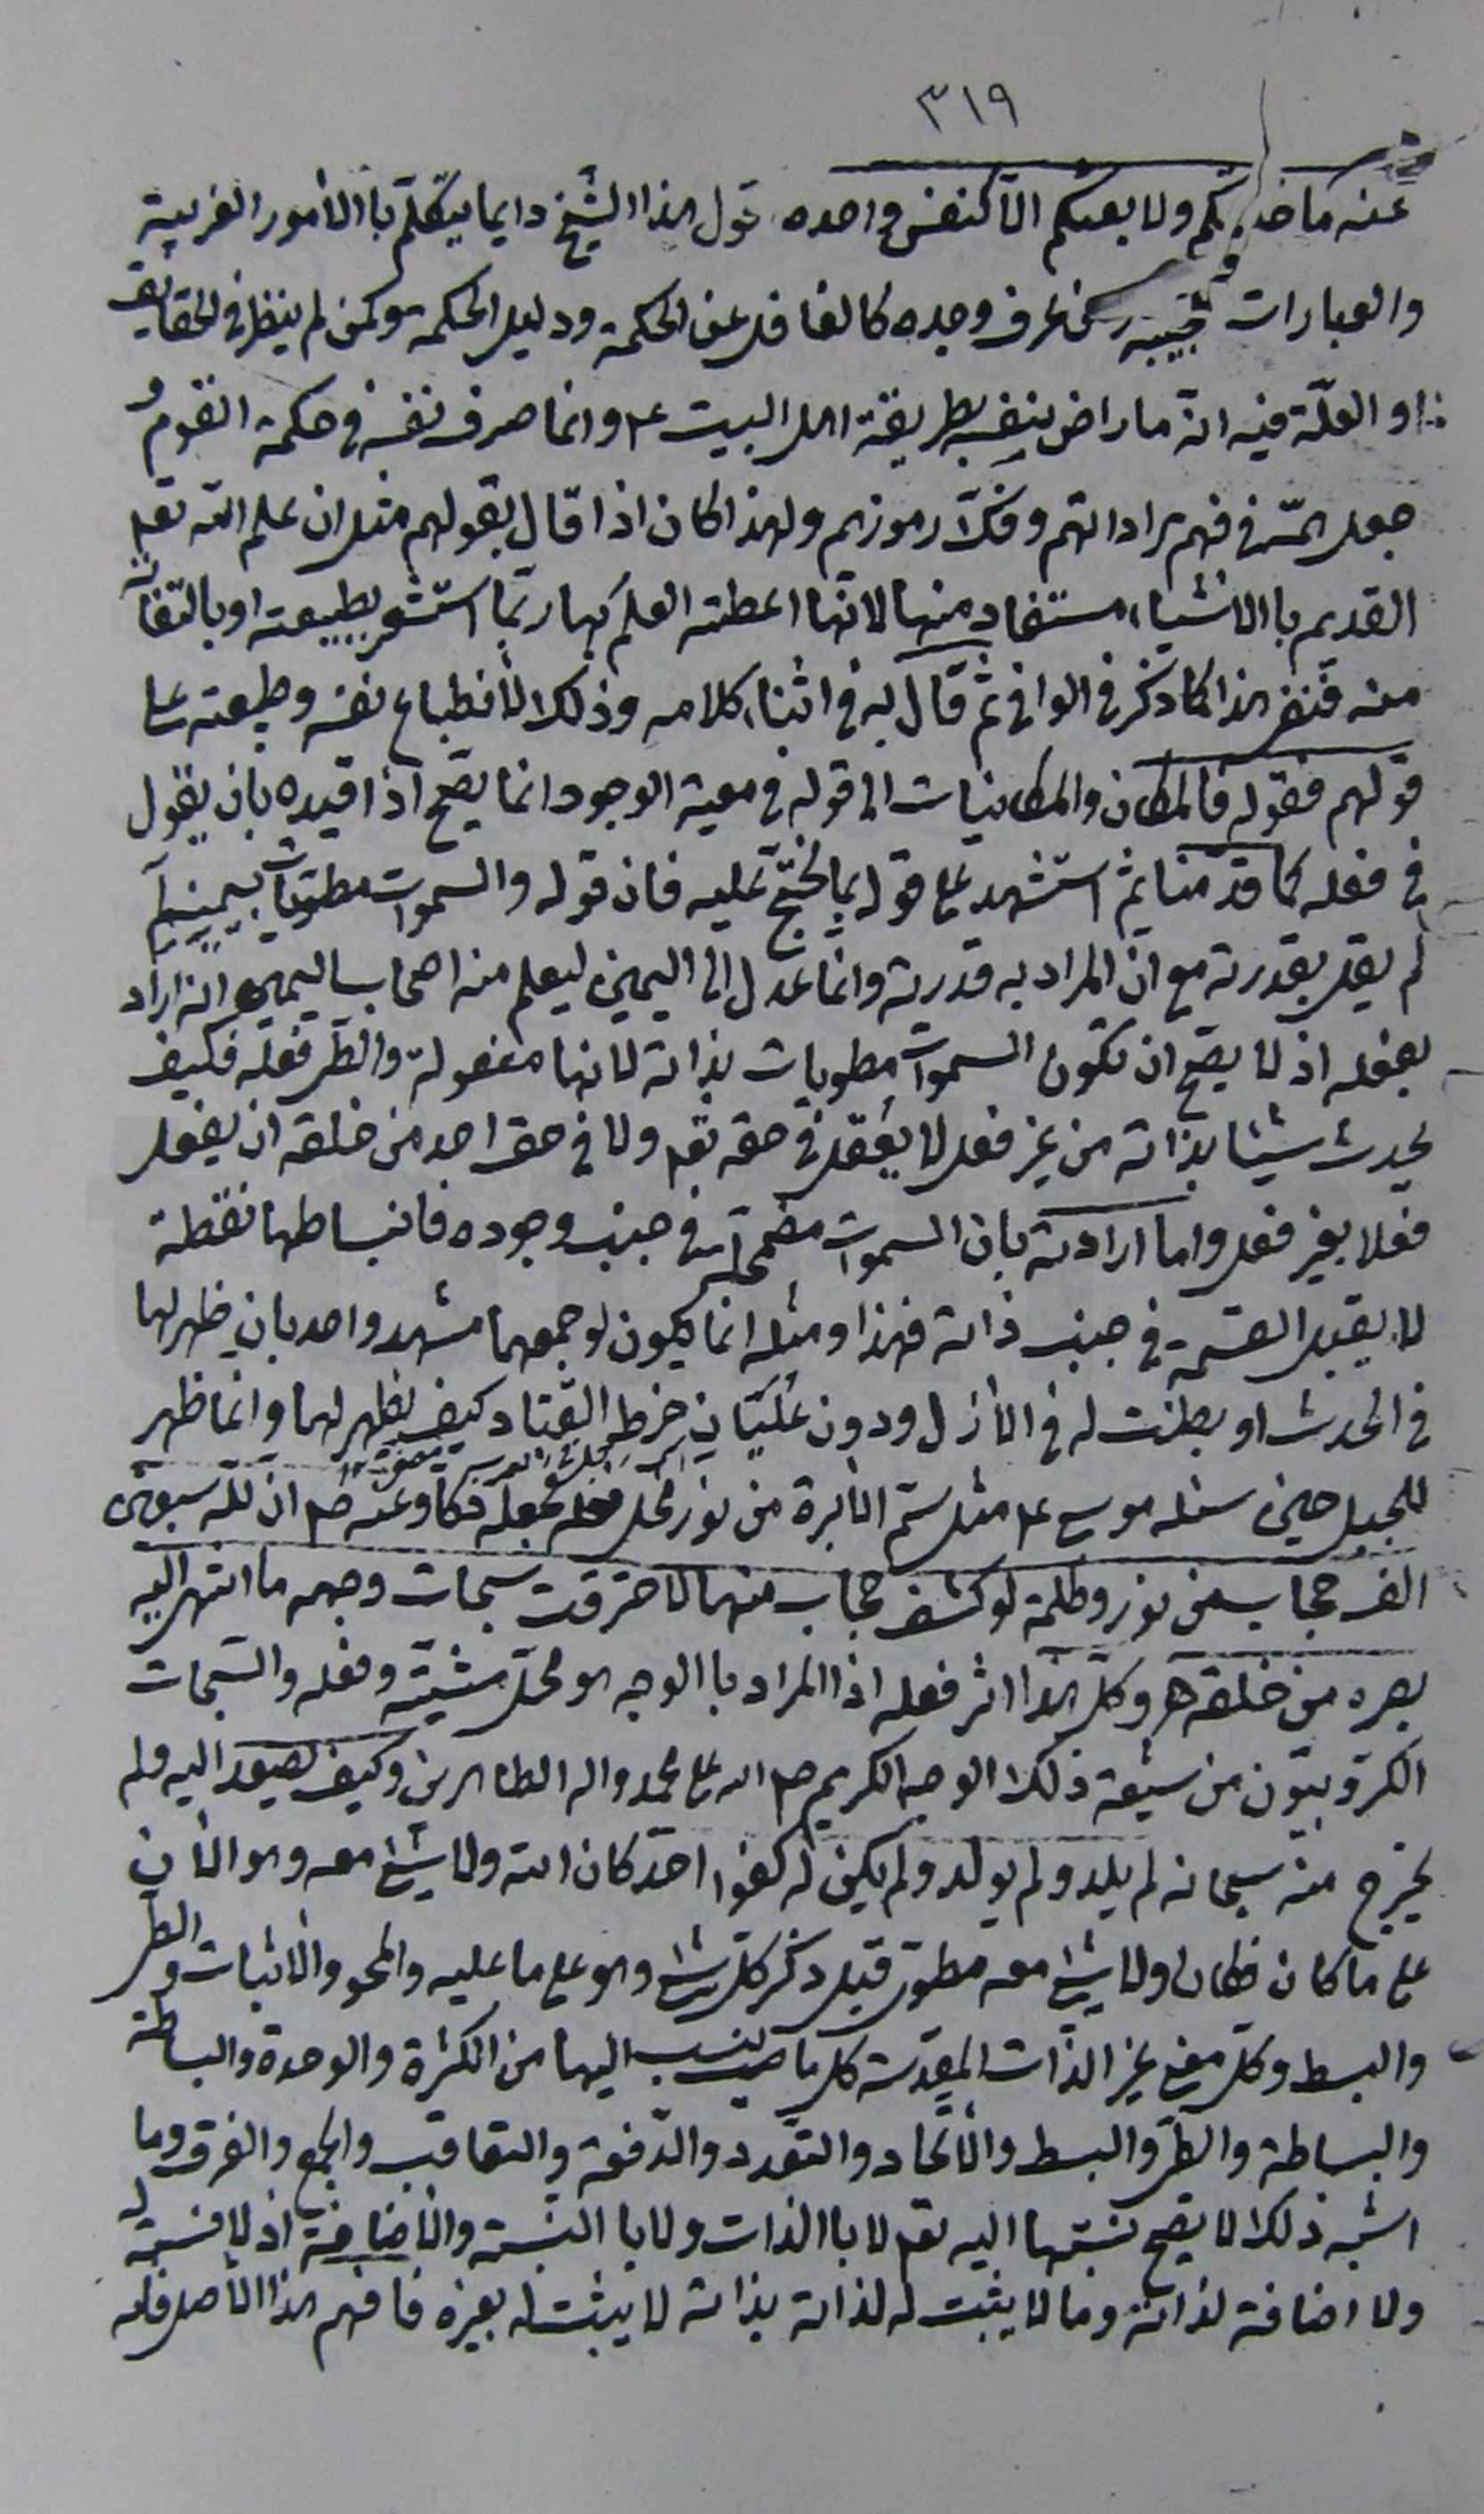 ٣١٩
عنه ما خلقكم ولا بعثكم الا كنفس واحدة قول هذا الشيخ دايما يتكلم باالأمور الغريبة
والعبارات من عرف وجده كالغافل عن الحكمة ودليل الحكمة وكمن لم ينظر في الحقايق
والعلّة فيه انه ما راض نفسه بطريقة اهل البيت ع وانما صرف نفسه في حكمة القوم و
جعل همّه في فهم مراداتهم وفكّ رموزهم ولهذا كان اذا قال بقولهم مثل ان علم الله تعلى
القديم باالاشياء مستفاد منها لانها اعطته العلم بها ربّما استشعر بطبيعته او بالتفات
منه فنفر هذا كما ذكر في الوافي ثم قال به في اثناء كلامه وذلك لأنطباع نفسه وطبيعته على
قولهم فقوله فالمكان والمكانيات الى قوله في معية الوجود انما يصح اذا قيده بان يقول
في فعله كما قدّمنا ثم استشهد على قوله بما يحتجّ عليه فان قوله والسموات مطويات بيمينه
لم يقل بقدرته مع انّ المراد به قدرته وانّما عدل الى اليمين ليعلم من اصحاب اليمين انه اراد
بفعله اذ لا يصح ان تكون السموات مطويات بذاته لانها مفعولة والطي فعله فكيف
يحدث شيئا بذاته من غير فعل لا يعقل في حقه تعلى ولا في حق احد من خلقه ان يفعل
فعلا بغير فعل واما ارادته بان السموات مضمحلة في جنب وجوده فانبساطها نقطة
لا يقبل القسمة في جنب ذاته فهذا ومثله انما يكون لو جمعهما مشهد واحد بان ظهر لها
في الحدث او بطنت له في الأزل ودون عليّان خرط القتاد كيف يظهر لها وانما ظهر
للجبل حين سئله موسى ع مثل سم الأبرة من نور فجعله دكا وعنه ص ان لله سبعين
الف حجاب من نور وظلمة لو كشف حجاب منها لاحترقت سبحات وجهه ما انتهى اليه
بصره من خلقه وكل هذا اثر فعله اذ المراد باالوجه هو محل مشيته وفعله والسبحات
الكروبيّون من شيعة ذلك الوجه الكريم صلى الله على محمد واله الطاهرين وكيف يعود اليه ولم
يخرج منه سبحانه لم يلد ولم يولد ولم يكن له كفوا احد كان الله ولا شيئ معه وهو الأن
على ما كان فكان ولا شيئ معه مطوي قبل ذكر كل شيئ وهو على ما عليه والمحو والأثبات والطي
والبسط وكل معنى غير الذات المقدسة كل ما ينسب اليها من الكثرة والوحدة والبساطة
والبساطة والطي والبسط والأتحاد والتعدد والدفعة والتعاقب والجمع والفرق وما
اشبه ذلك لا يصح نسبتها اليه تعلى لا باالذات ولا باالنسبة والأضافة اذ لا نسبة له
ولا اضافة لذاته وما لا يثبت له لذاته بذاته لا يثبت له بغيره فافهم هذا الأصل فانه